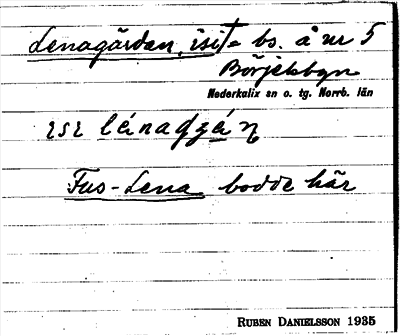 Lenagårdan, isit- bs. å nr 5
Börjelsbyn
Nederkalix sn o. tg. Norrb. län
Fus-Lena bodde här
RUBEN DANIELSSON 1935